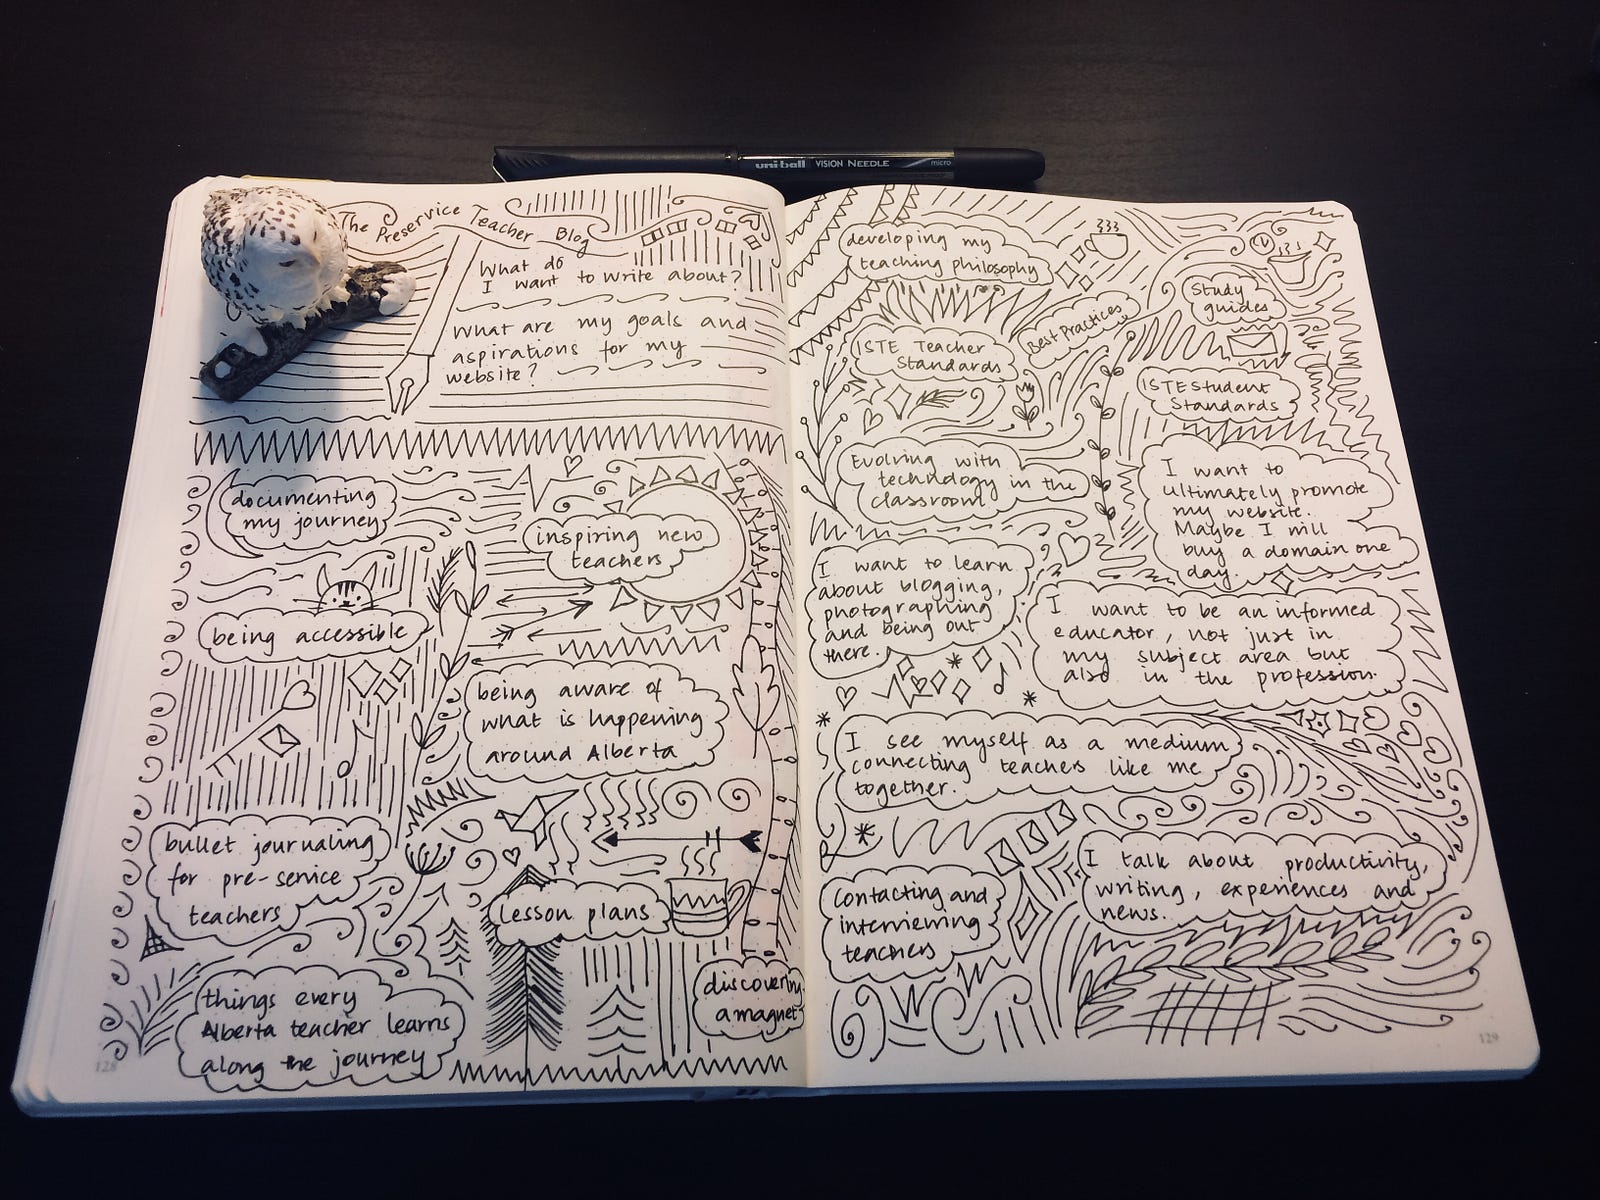 uni-ball VISION NEEDLE micro
The Preservice Teacher Blog
What do
I want to write about?
What are my goals and
aspirations for my
website?
documenting
my journey
inspiring new
teachers
being accessible
being aware of
what is happening
around Alberta
bullet journaling
for pre-service
teachers
Lesson plans
things every
Alberta teacher learns
along the journey
discovering
a magnet
128
developing my
teaching philosophy
Study
guides
Best Practices
ISTE Teacher
Standards
ISTE Student
Standards
Evolving with
technology in the
classroom
I want to
ultimately promote
my website.
Maybe I will
buy a domain one
day.
I want to learn
about blogging,
photographing
and being out
there.
I want to be an informed
educator, not just in
my subject area but
also in the profession.
I see myself as a medium
connecting teachers like me
together.
I talk about productivity,
writing, experiences and
news.
Contacting and
interviewing
teachers
129